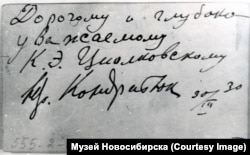 Дорогому и глубоко
уважаемому
К. Э. Циолковскому
Юр. Кондратюк 30/IV 30
555.2
Музей Новосибирска (Courtesy Image)